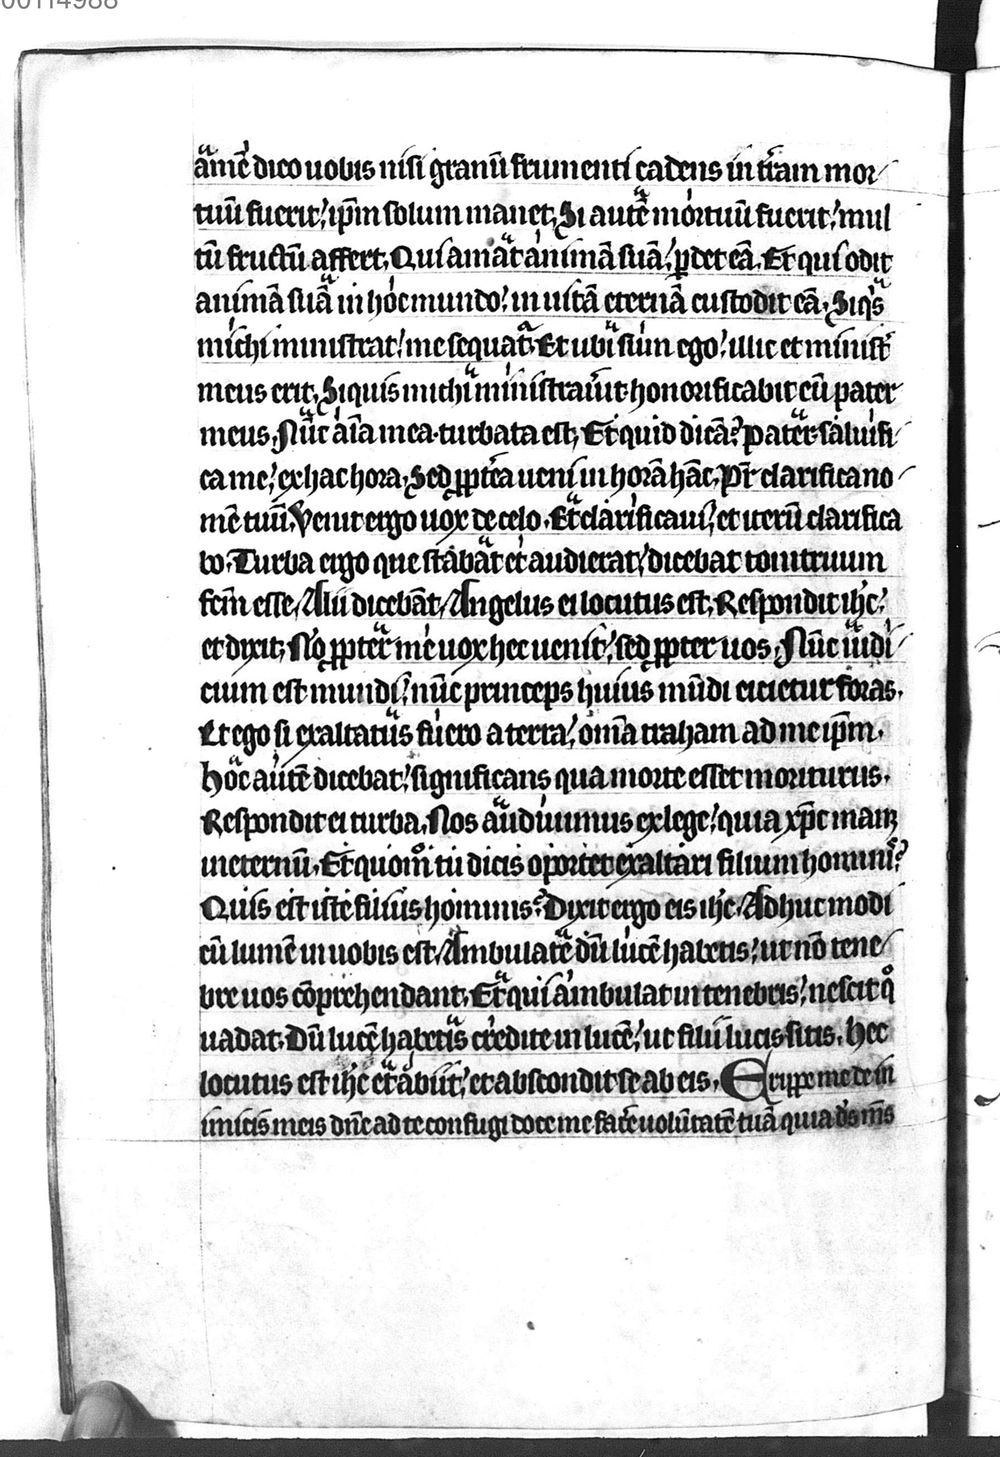 00114988
amē dico uobis nisi granū frumenti cadens in tr̄am mor/
tuū fuerit, ip̄m solum manet. Si autē mortuū fuerit, mul
tū fructū affert. Qui amat animā suā, ꝑdet eā. Et qui odit
animā suā in hoc mundo, in uitā eternā custodit eā. Siq̄s
michi ministrat, me sequat̄. Et ubi sum ego, illic et minist̄
meus erit. Siquis michi ministrau̅it, honorificabit eū pater
meus. Nūc aīa mea turbata est. Et quid dicā? Pater saluifi/
ca me, ex hac hora. Sed ꝓpt̄ea ueni in horā hāc. Pr̄ clarifica no/
mē tuū. Venit ergo uox de celo. Et clarificaui, et iterū clarifica
bo. Turba ergo que stabat et audierat, dicebat tonitruum
fc̄m esse. Alii dicebāt, Angelus ei locutus est. Respondit ih̄c,
et dixit. Nō ꝓpter me uox hec uenit, sed ꝓpter uos. Nūc iudi/
cium est mundi, nūc princeps huius mūdi eicietur foras.
Et ego si exaltatus fuero a terra, om̄a traham ad me ip̄m.
Hoc autē dicebat, significans qua morte esset moriturus.
Respondit ei turba. Nos audiuimus ex lege, quia xp̄c manꝫ
ineternū. Et quom̊ tu dicis oportet exaltari filium hominis?
Quis est iste filius hominis? Dixit ergo eis ih̄c. Adhuc modi
cū lumē in uobis est. Ambulate dū lucē habetis, ut nō tene/
bre uos cōprehendant. Et qui ambulat in tenebris, nescit q̊
uadat. Dū lucē habetis credite in lucē, ut filii lucis sitis. Hec
locutus est ih̄c et abiit, et abscondit se ab eis. Eripe me de in
imicis meis dn̄e ad te confugi doce me fac̄e uolūtatē tuā quia ds̄ ms̄